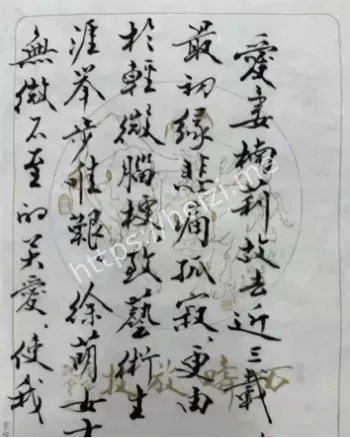 愛妻楠莉故去近三載
最初緣悲痛孤寂、更由
於輕微腦梗致藝術生
涯举步惟艱 徐萌女士
無微不至的关愛、使我
https://herzl.me